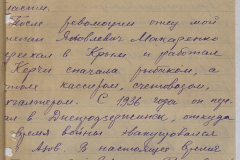 ласти.
После революции отец мой
Яковлевич Макаренко
переехал в Крым и работал
Керчи сначала рыбаком, а
кассиром, счетоводом,
С 1936 года он пере
в Днепродзержинск, откуда
время войны эвакуировался
Азов. В настоящее время